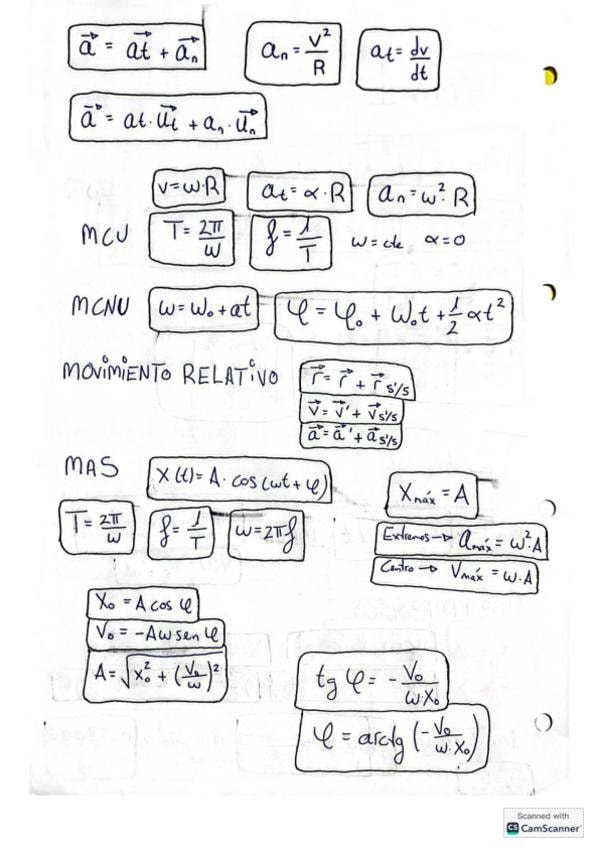 a⃗ = a⃗t + a⃗n
an = v²/R
at = dv/dt
a⃗ = at · u⃗t + an · u⃗n
v = ω·R
at = α·R
an = ω²·R
MCU
T = 2π/ω
f = 1/T
ω = cte α = 0
MCNU
ω = ω₀ + at
φ = φ₀ + ω₀t + 1/2 αt²
MOVIMIENTO RELATIVO
r⃗ = r⃗ + r⃗ s'/s
v⃗ = v⃗' + v⃗ s'/s
a⃗ = a⃗' + a⃗ s'/s
MAS
X(t) = A · cos(ωt + φ)
Xmáx = A
T = 2π/ω
f = 1/T
ω = 2πf
Extremos → amáx = ω²·A
Centro → Vmáx = ω·A
X₀ = A cos φ
V₀ = -Aω sen φ
A = √(X₀² + (V₀/ω)²)
tg φ = - V₀/(ω·X₀)
φ = arctg (- V₀/(ω·X₀))
Scanned with
CS CamScanner